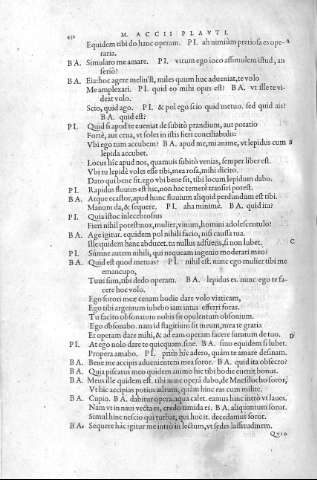 430 M. ACCII PLAVTI.
Equidem tibi do hanc operam. PI. ah nimium pretiosa es operaria.
BA. Simulato me amare. PI. vtrum ego ioco assimulem istud, an
serió?
BA. Eia hoc agere meliust, miles quum huc adueniat, te volo
Me amplexari. PI. quid eo mihi opus est? BA. vt ille te videat volo.
Scio, quid ago. PI. & pol ego scio quid metuo. sed quid ais?
BA. quid est?
PI. Quid si apud te eueniat de subitò prandium, aut potatio
Fortè, aut cena, vt solet in istis fieri conciliabulis:
Vbi ego tum accubem? BA. apud me, mi anime, vt lepidus cum
lepida accubet.
Locus hic apud nos, quamuis subitò venias, semper liber est.
Vbi tu lepidè voles esse tibi, mea rosa, mihi dicito.
Dato qui bene sit. ego vbi bene sit, tibi locum lepidum dabo.
PI. Rapidus fluuius est hic, non hac temerè transiri potest.
BA. Atque ecastor, apud hunc fluuium aliquid perdundum est tibi.
Manum da, & sequere. PI. aha minimè. BA. quid ita?
PI. Quia istoc inlecebrosius
Fieri nihil potest nox, mulier, vinum, homini adolescentulo?
BA. Age igitur. equidem pol nihili facio, nisi caussa tua.
Ille quidem hanc abducet. tu nullus adfueris, si non lubet.
PI. Sumne autem nihili, qui nequeam ingenio moderari meo?
BA. Quid est quod metuas? PI. nihil est. nunc ego mulier tibi me
emancupo,
Tuus sum, tibi dedo operam. BA. lepidus es. nunc ego te facere hoc volo.
Ego sorori meæ cenam hodie dare volo viaticam,
Ego tibi argentum iubebo iam intus efferri foras.
Tu facito obsonatum nobis sit opulentum obsonium.
Ego obsonabo. nam id flagitium sit meum, mea te gratia
Et operam dare mihi, & ad eam operam facere sumtum de tuo.
PI. At ego nolo dare te quicquam. sine. BA. sino equidem si lubet.
Propera amabo. PI. priùs hic adero, quàm te amare desinam.
BA. Bene me accipis aduenientem mea soror. BA. quid ita obsecro?
BA. Quia piscatus meo quidem animo hic tibi hodie euenit bonus.
BA. Meus ille quidem est. tibi nunc operã dabo, de Mnesilocho soror,
Vt hîc accipias potius aurum, quàm hinc eas cum milite.
BA. Cupio. BA. dabitur opera, aqua calet. eamus hinc intrò vt laues.
Nam vt in naui vecta es, credo timida es. BA. aliquantum soror.
Simul hinc nescio qui turbat, qui huc it. decedamus soror.
BA. Sequere hàc igitur me intrò in lectum, vt sedes lassitudinem.